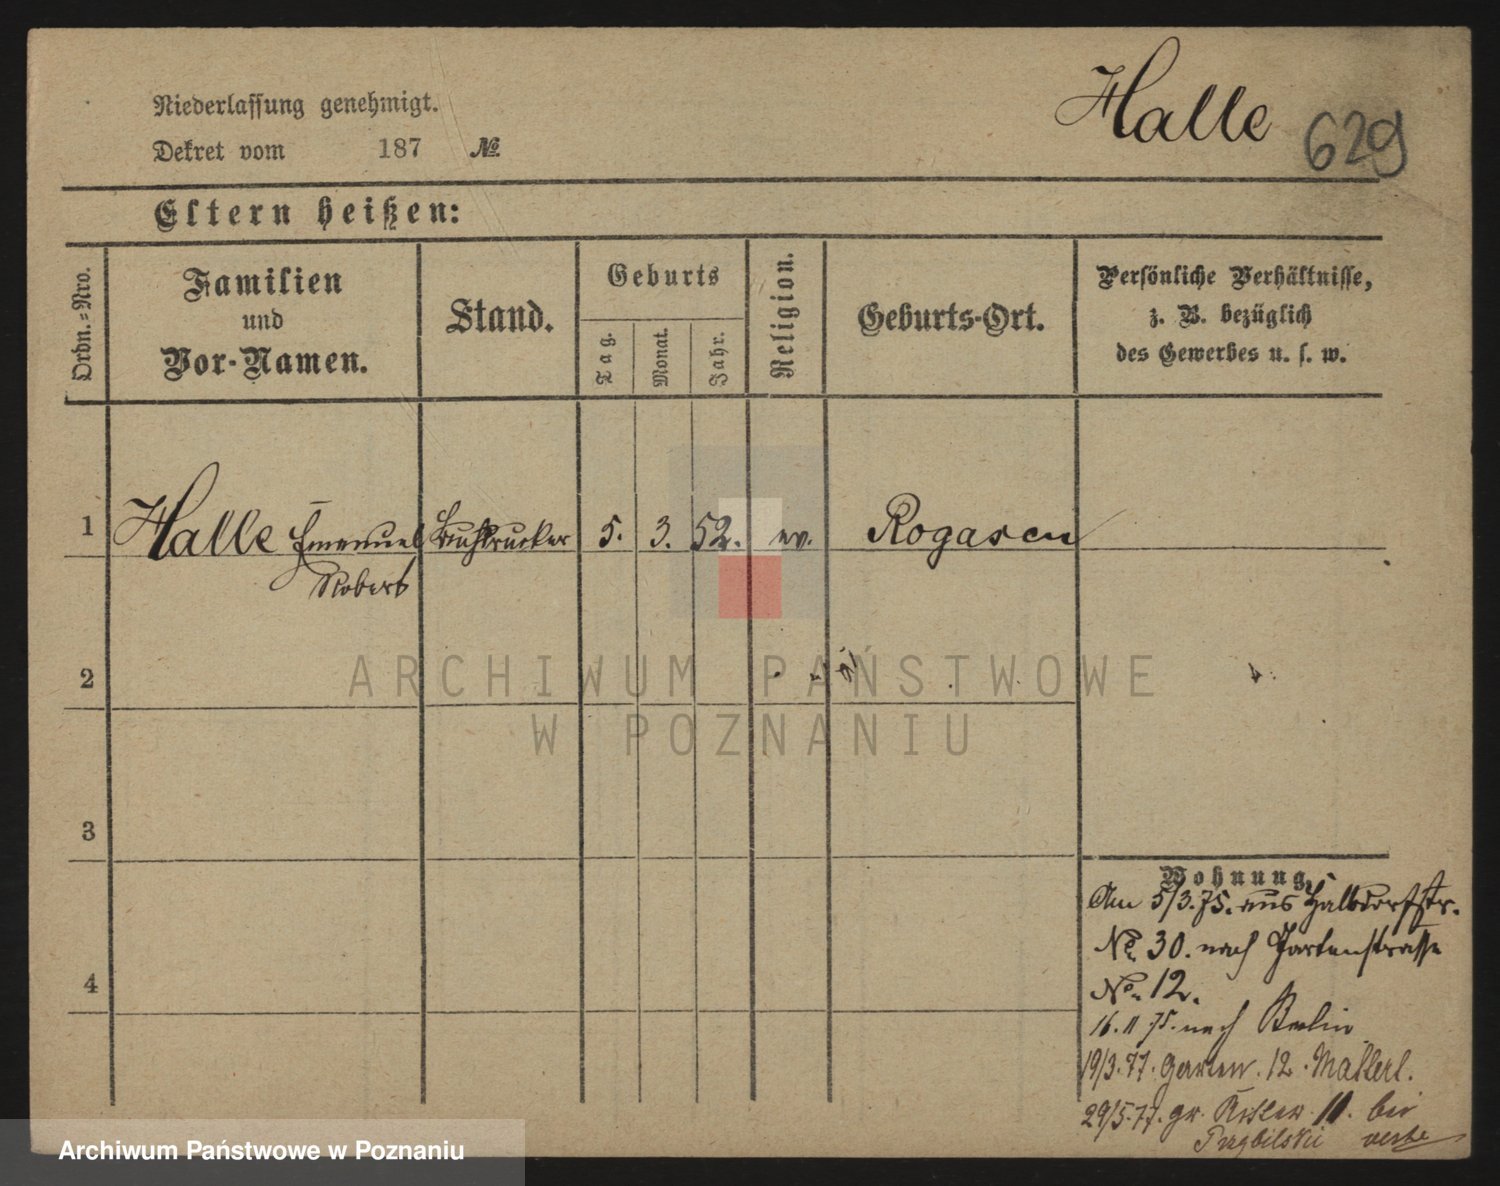 Halle 629
Niederlassung genehmigt.
Dekret vom 187 №
Eltern heißen:
Ordn.-Nro.
Familien
und
Vor-Namen.
Stand.
Geburts
Tag.
Monat.
Jahr.
Religion.
Geburts-Ort.
Persönliche Verhältnisse,
z. B. bezüglich
des Gewerbes u. s. w.
1 Halle Emanuel Buchdrucker 5. 3. 52. ev. Rogasen
Robert
2
3
4
Wohnung
Am 5/3.75. aus Halbdorfstr.
No 30. nach Gartenstrasse
No. 12.
16.11.75. nach Berlin
19/3.77. Garten. 12.
29/5.77. gr. Ritter. 11. bei
ARCHIWUM PAŃSTWOWE
W POZNANIU
Archiwum Państwowe w Poznaniu